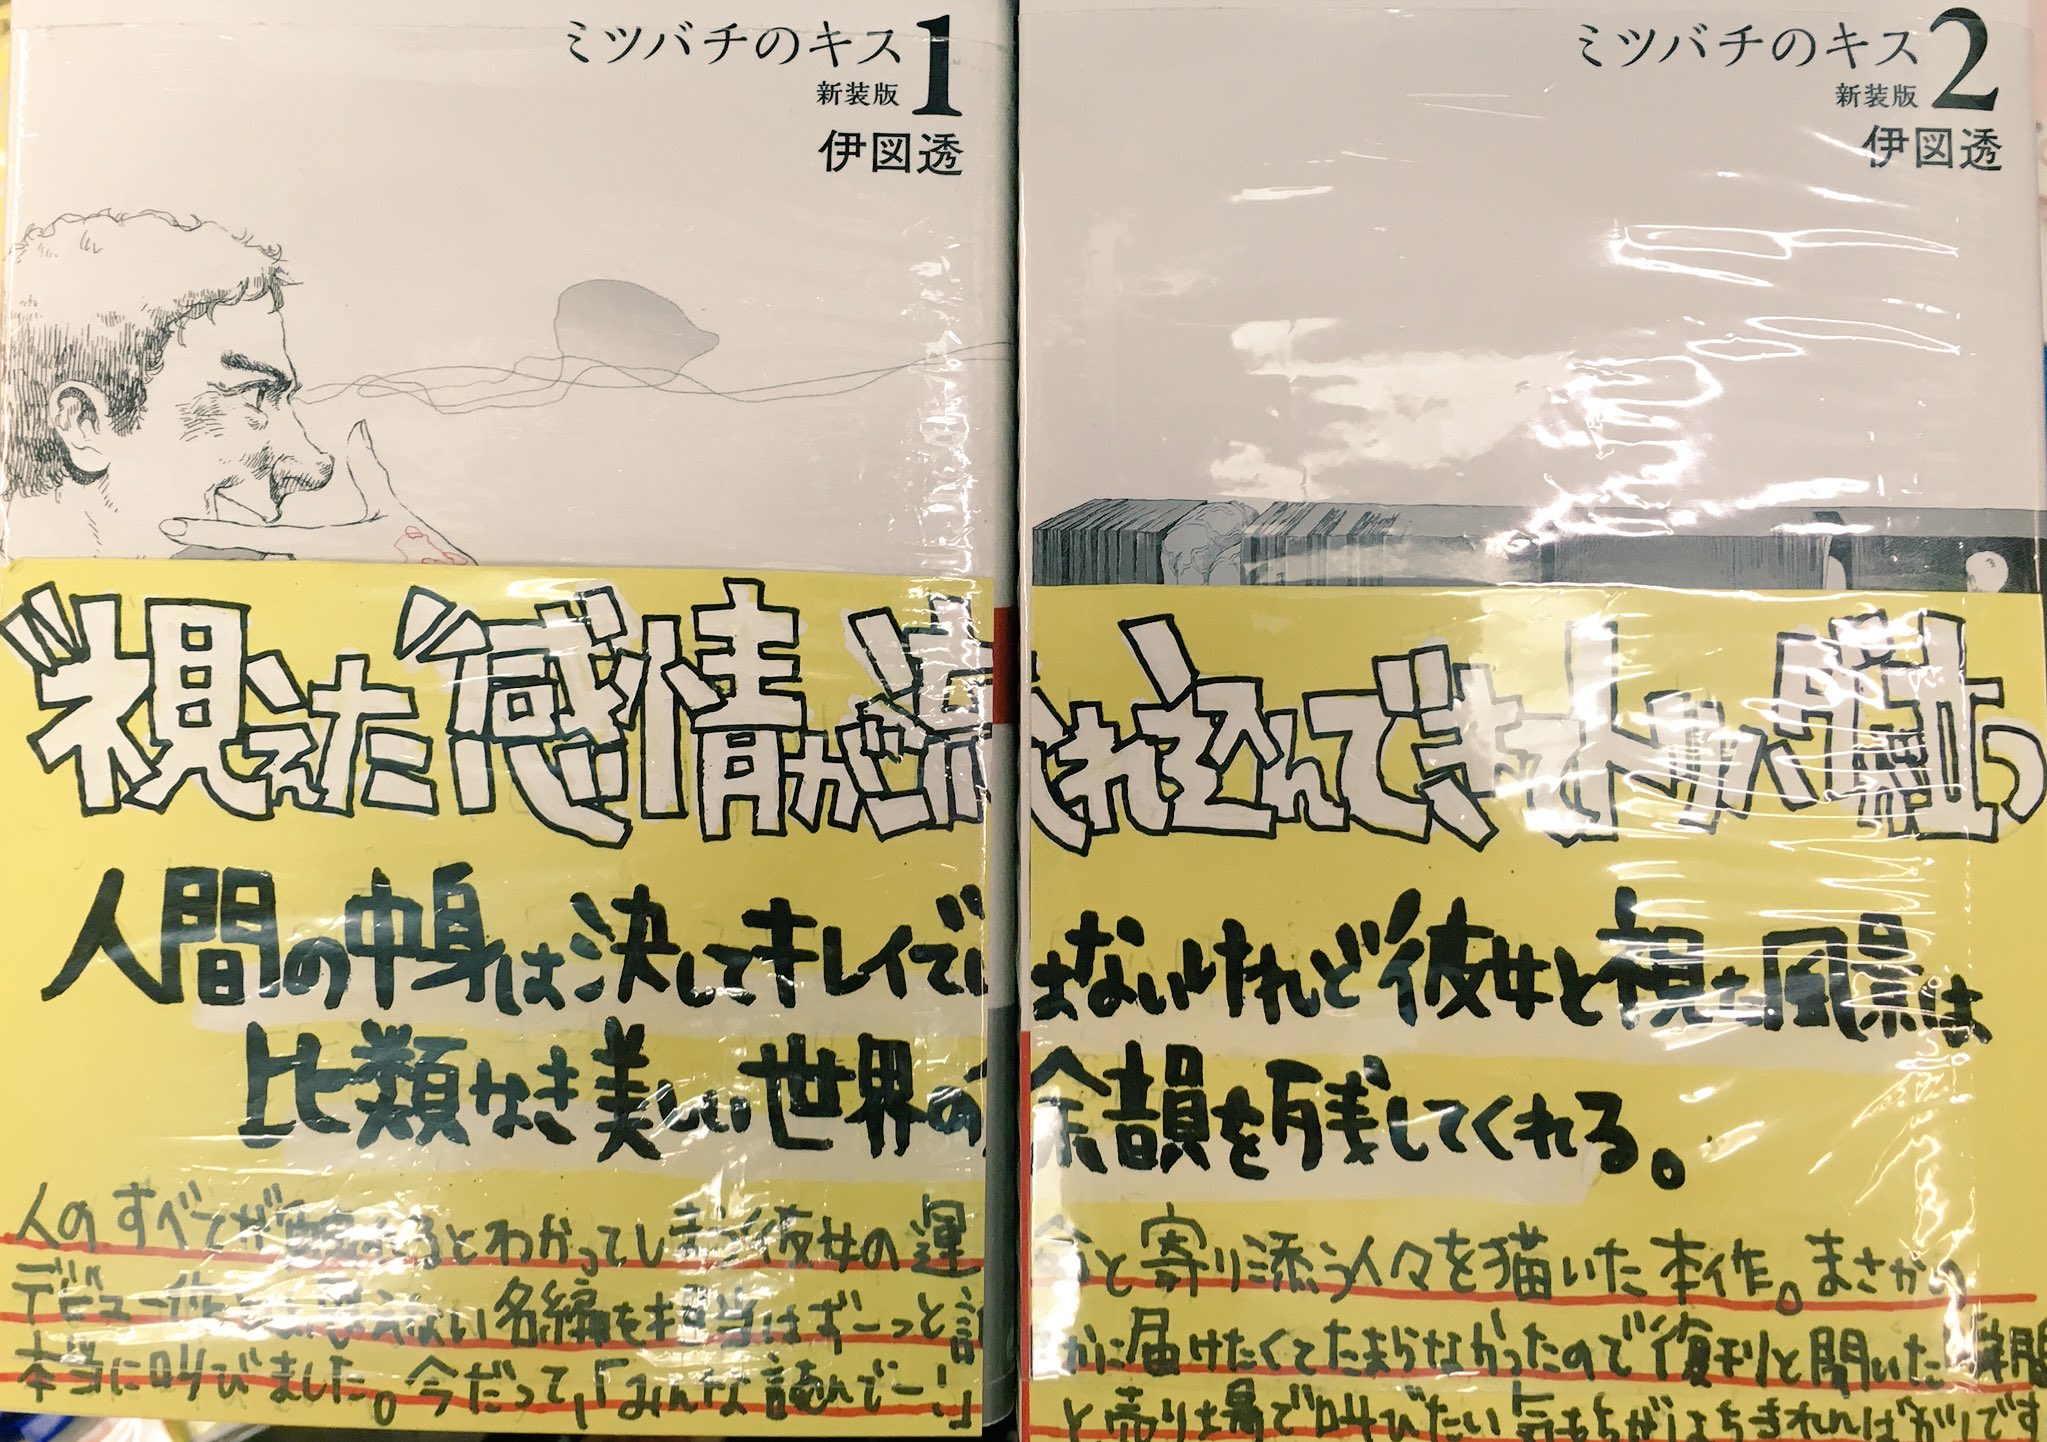 ミツバチのキス 1
新装版
伊図透
ミツバチのキス 2
新装版
伊図透
"視えた"感情が流れ込んできてトリハダ立つ
人間の中身は決してキレイではないけれど彼女と視た風景は
比類なき美しい世界の余韻を残してくれる。
人のすべてが触れるとわかってしまう彼女の運命と寄り添う人々を描いた本作。まさかの
デビュー作とは思えない名編を担当はずーっと誰かに届けたくてたまらなかったので復刊と聞いた瞬間
本当に叫びました。今だって、「みんな読んでー!」と売り場で叫びたい気持ちがはちきれんばかりです